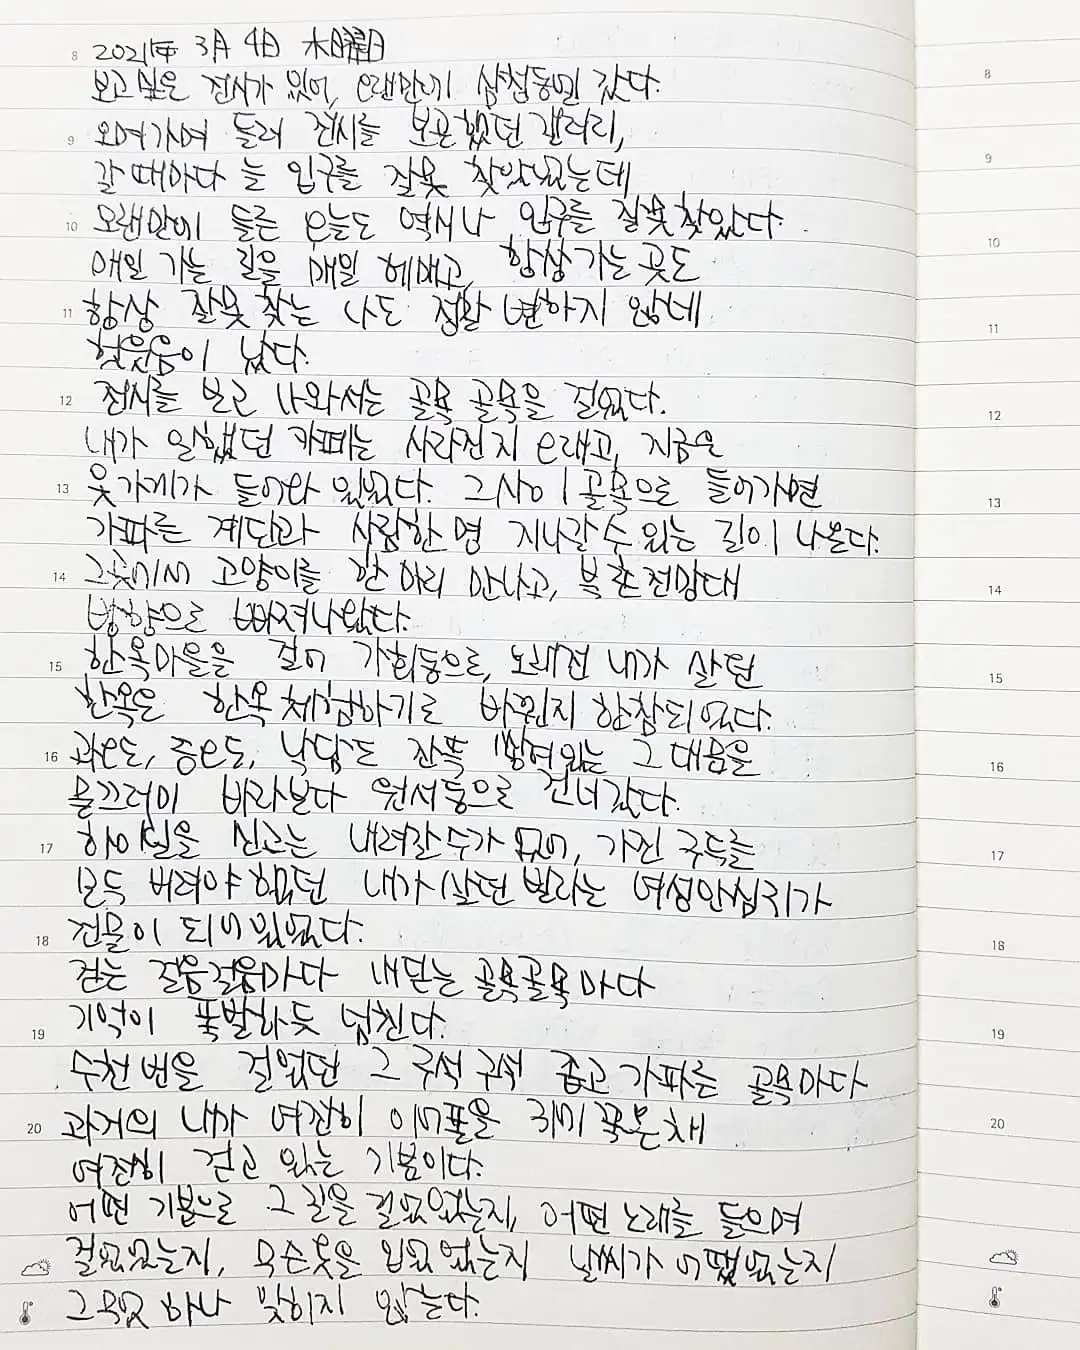 8 2021年 3月 4日 木曜日
보고싶은 전시가 있어, 오랜만에 삼청동엘 갔다.
9 오며가며 들러 전시를 보곤했던 갤러리,
갈 때마다 늘 입구를 잘못 찾았었는데
10 오랜만에 들른 오늘도 역시나 입구를 잘못찾았다.
매일 가는 길을 매일 헤매고, 항상 가는 곳도
11 항상 잘못 찾는 나도 정말 변하지 않네
헛웃음이 났다.
12 전시를 보고 나와서는 골목 골목을 걸었다.
내가 일했던 카페는 사라진지 오래고, 지금은
13 옷가게가 들어와 있었다. 그사이 골목으로 들어가면
가파른 계단과 사람한명 지나갈 수 있는 길이 나온다.
14 그곳에서 고양이를 한 마리 만나고, 북촌전망대
방향으로 빠져나왔다.
15 한옥마을을 걸어 가회동으로, 오래전 내가 살던
한옥은 한옥체험하기로 바뀐지 한참되었다.
16 과오도, 증오도, 낙담도 잔뜩 쌓여있는 그 대문을
물끄러미 바라보다 원서동으로 건너갔다.
17 하이힐을 신고는 내려갈 수가 없어, 가진 구두를
모두 버려야 했던 내가 살던 빌라는 여성안심귀가
18 건물이 되어있었다.
걷는 걸음걸음마다 내딛는 골목골목마다
19 기억이 폭발하듯 넘친다.
수천 번을 걸었던 그 구석 구석 좁고 가파른 골목마다
20 과거의 내가 여전히 이어폰을 귀에 꽂은채
여전히 걷고 있는 기분이다.
어떤 기분으로 그 길을 걸었었는지, 어떤 노래를 들으며
걸었었는지, 무슨옷을 입었었는지 날씨가 어땠었는지
그 무엇 하나 잊히지 않는다.
8
9
10
11
12
13
14
15
16
17
18
19
20